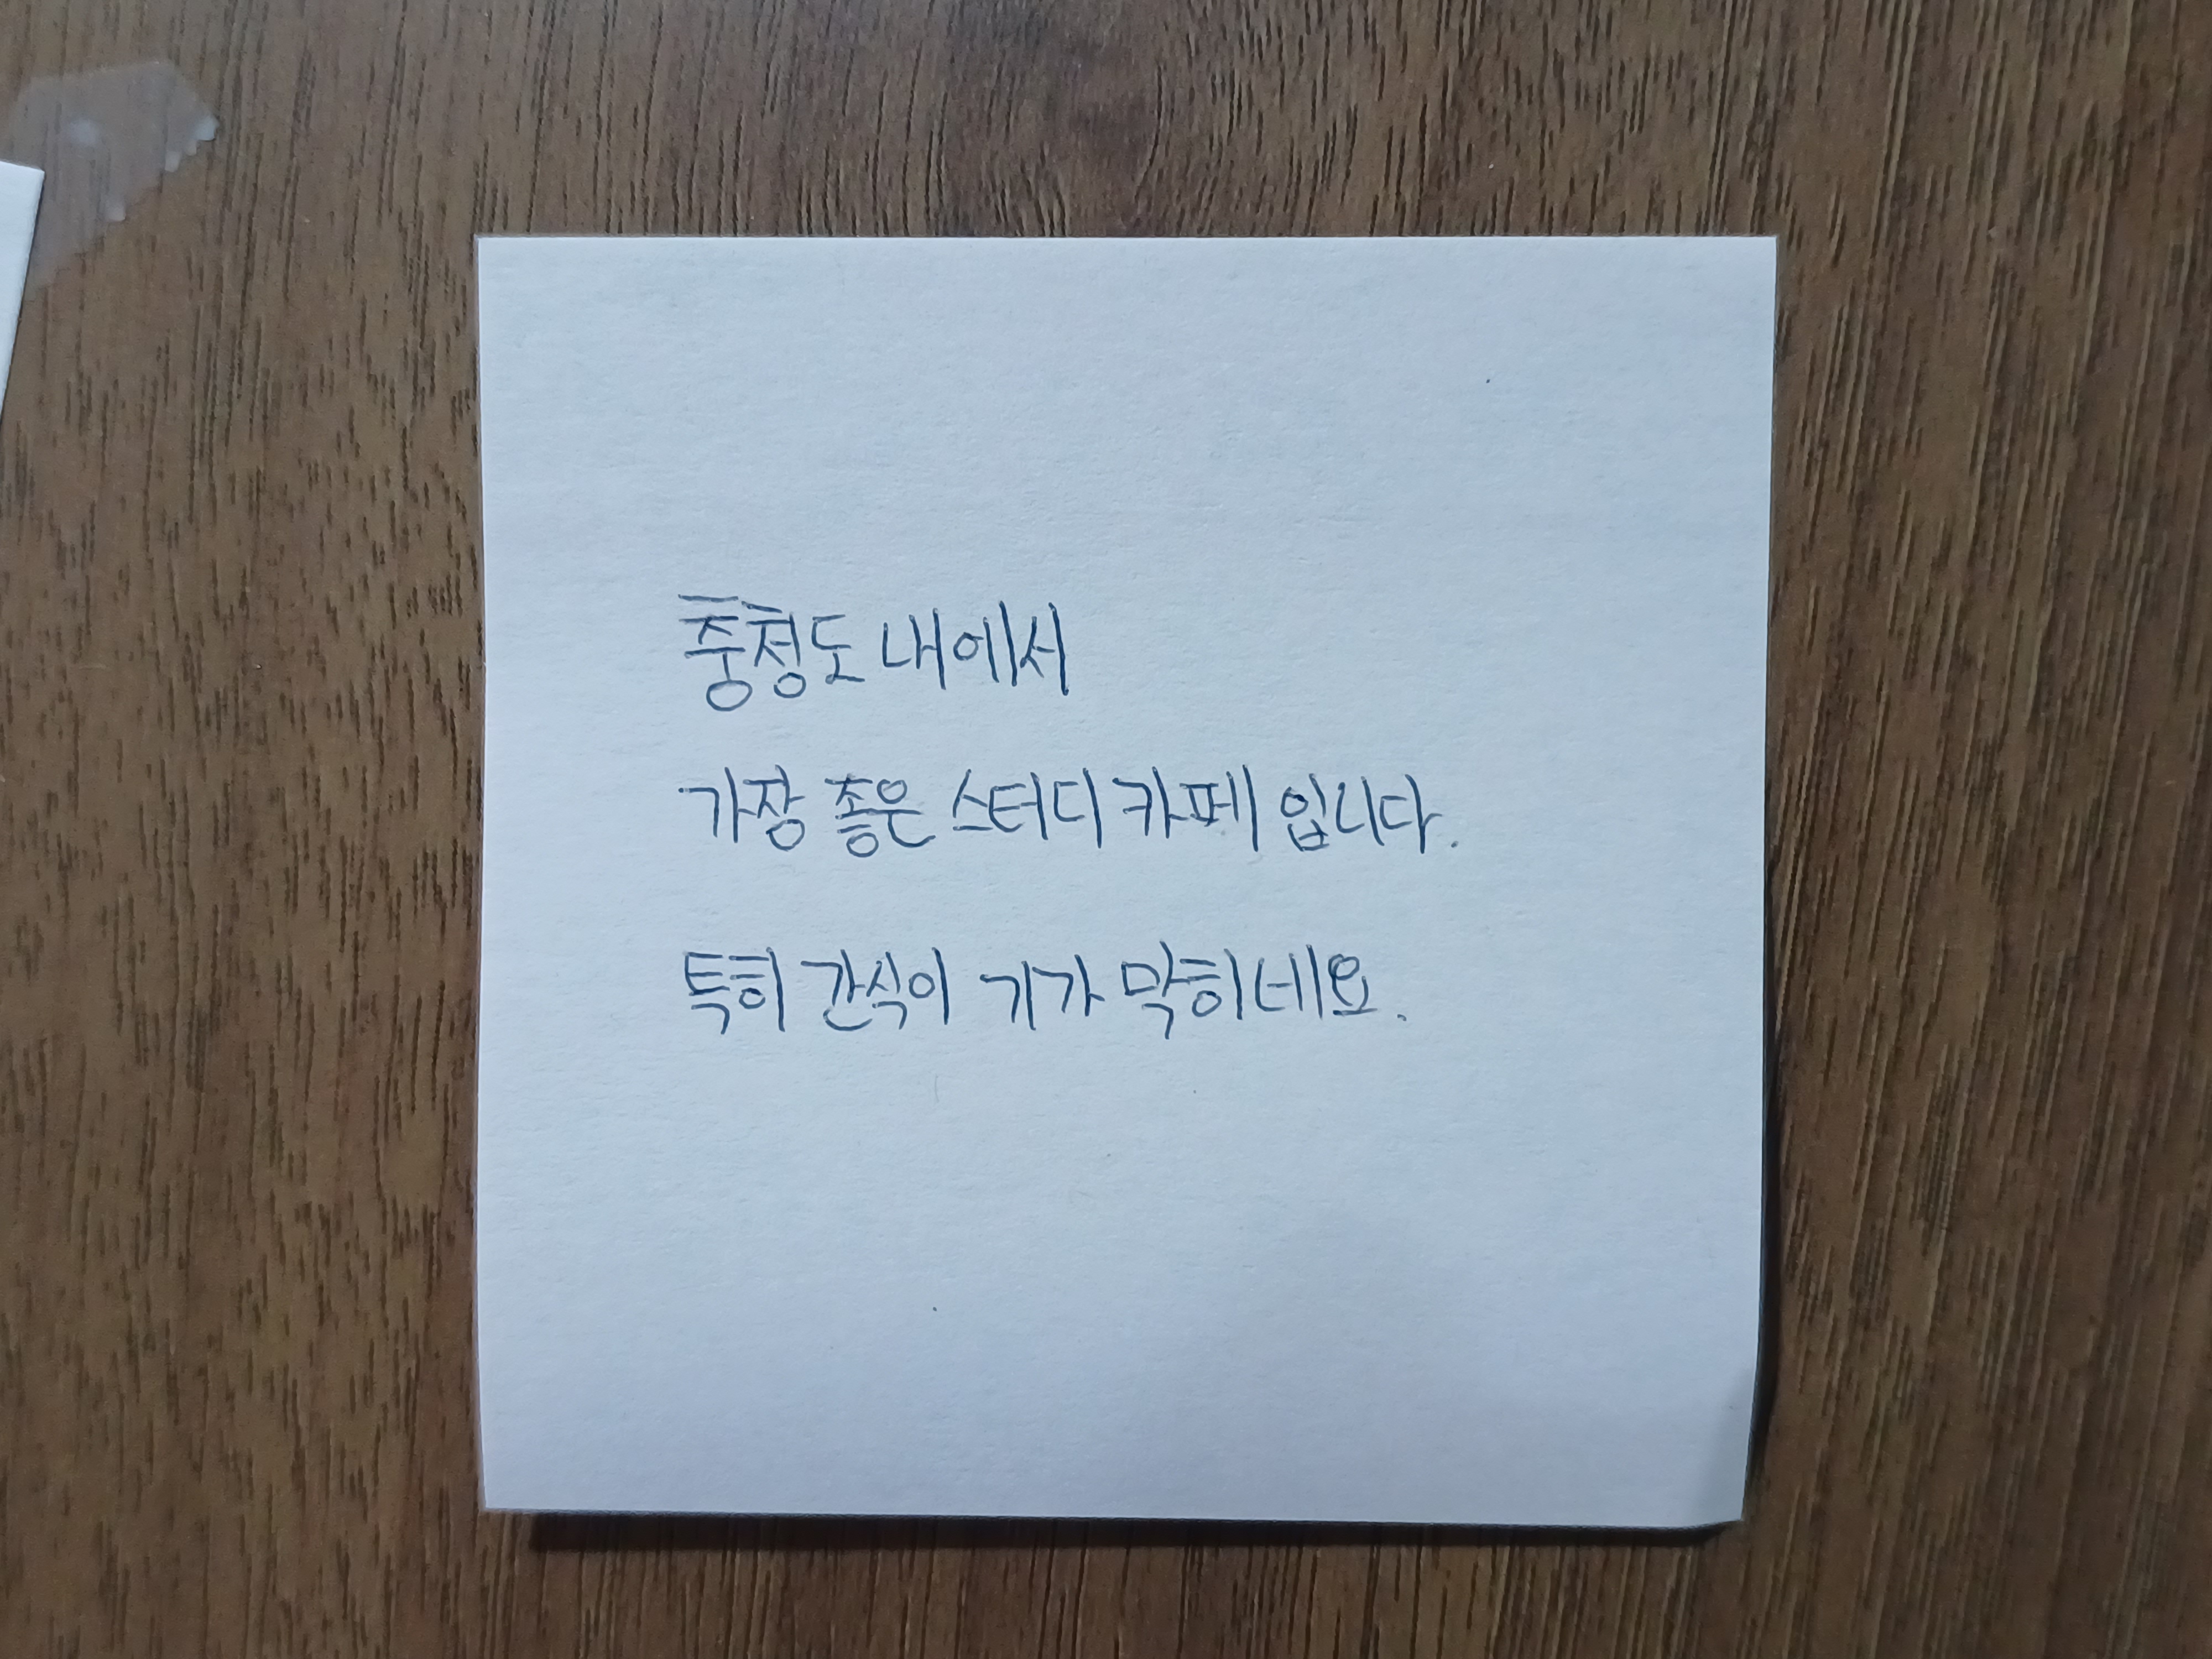 충청도 내에서
가장 좋은 스터디 카페 입니다.
특히 간식이 기가 막히네요.